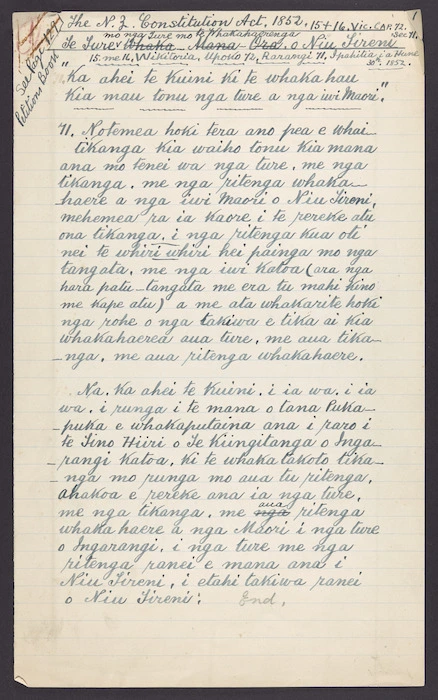 The N.Z. Constitution Act, 1852, 15+16. Vic. CAP. 72. Sec 71.
mo nga Ture mo te Whakahaerenga
Te Ture Whaka-Mana-Ora o Niu Tireni
15 me 16, Wikitoria, Upoko 72, Rarangi 71, Ipahitia i a Hune 30th 1852.
See page 129
Petitions Book
"Ka ahei te Kuini ki te whakahau
kia mau tonu nga ture a nga iwi Maori".
71. Notemea hoki tera ano pea e whai-
tikanga kia waiho tonu kia mana
ana mo tenei wa nga ture, me nga
tikanga, me nga ritenga whaka-
haere a nga iwi Maori o Niu Tireni,
mehemea ra ia kaore i te rereke atu
ona tikanga, i nga ritenga kua oti
nei te whiri whiri hei painga mo nga
tangata, me nga iwi katoa (ara nga
hara patu-tangata me era tu mahi kino
me kape atu) a me ata whakarite hoki
nga rohe o nga takiwa e tika ai kia
whakahaerea aua ture, me aua tika-
-nga, me aua ritenga whakahaere.
Na, Ka ahei te Kuini, i ia wa, i ia
wa, i runga i te mana o tana Puka-
puka e whakaputaina ana i raro i
te Tino Hiiri o Te Kiingitanga o Inga-
rangi Katoa, ki te whaka takoto tika-
-nga mo runga mo aua tu ritenga,
ahakoa e rereke ana ia nga ture,
me nga tikanga, me nga aua ritenga
whaka haere a nga Maori i nga ture
o Ingarangi, i nga ture me nga
ritenga ranei e mana ana i
Niu Tireni, i etahi takiwa ranei
o Niu Tireni: End.